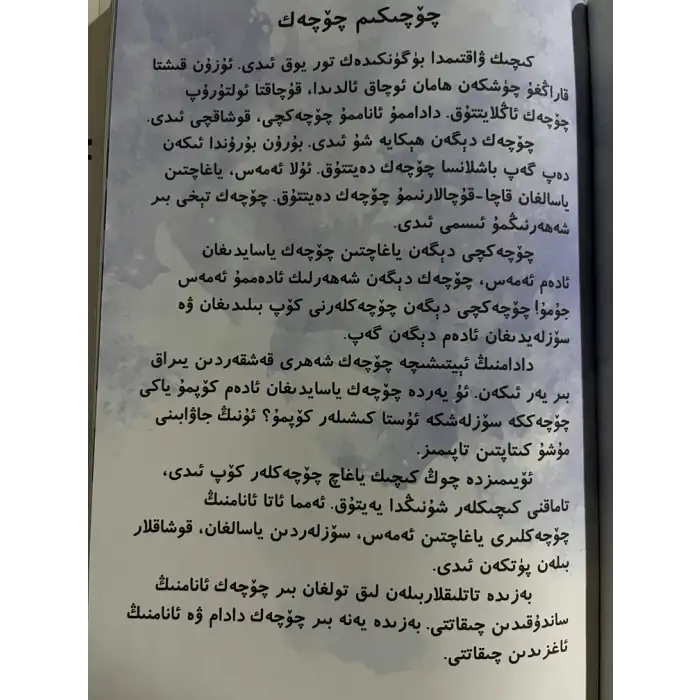 چۆچىكىم چۆچەك
كىچىك ۋاقتىمدا بۈگۈنكىدەك تور يوق ئىدى. ئۇزۇن قىشتا
قاراڭغۇ چۈشكەن ھامان ئوچاق ئالدىدا، قۇچاقتا ئولتۇرۇپ
چۆچەك ئاڭلايتتۇق. داداممۇ ئاناممۇ چۆچەكچى، قوشاقچى ئىدى.
چۆچەك دېگەن ھېكايە شۇ ئىدى. بۇرۇن بۇرۇندا ئىكەن
دەپ گەپ باشلانسا چۆچەك دەيتتۇق. ئۇلا ئەمەس، ياغاچتىن
ياسالغان قاچا-قۇچالارنىمۇ چۆچەك دەيتتۇق. چۆچەك تېخى بىر
شەھەرنىڭمۇ ئىسمى ئىدى.
چۆچەكچى دېگەن ياغاچتىن چۆچەك ياسايدىغان
ئادەم ئەمەس، چۆچەك دېگەن شەھەرلىك ئادەممۇ ئەمەس
جۇمۇ! چۆچەكچى دېگەن چۆچەكلەرنى كۆپ بىلىدىغان ۋە
سۆزلەيدىغان ئادەم دېگەن گەپ.
دادامنىڭ ئېيتىشىچە چۆچەك شەھرى قەشقەردىن يىراق
بىر يەر ئىكەن. ئۇ يەردە چۆچەك ياسايدىغان ئادەم كۆپمۇ ياكى
چۆچەككە سۆزلەشكە ئۇستا كىشىلەر كۆپمۇ؟ ئۇنىڭ جاۋابىنى
مۇشۇ كىتاپتىن تاپىمىز.
ئۆيىمىزدە چوڭ كىچىك ياغاچ چۆچەكلەر كۆپ ئىدى،
تاماقنى كىچىكلەر شۇنىڭدا يەيتۇق. ئەمما ئاتا ئانامنىڭ
چۆچەكلىرى ياغاچتىن ئەمەس، سۆزلەردىن ياسالغان، قوشاقلار
بىلەن پۈتكەن ئىدى.
بەزىدە تاتلىقلاربىلەن لىق تولغان بىر چۆچەك ئانامنىڭ
ساندۇقىدىن چىقاتتى. بەزىدە يەنە بىر چۆچەك دادام ۋە ئانامنىڭ
ئاغزىدىن چىقاتتى.